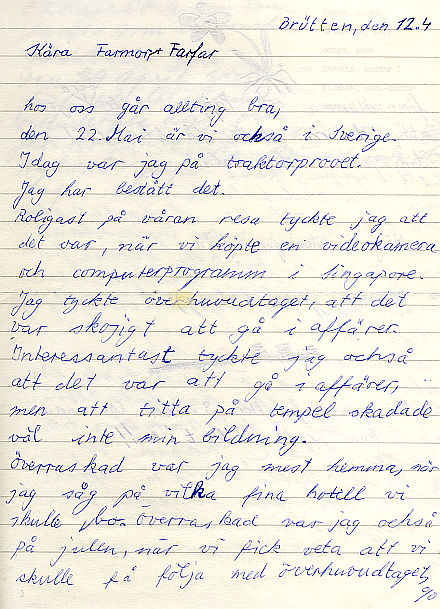 Brütten, den 12.4
Kära Farmor+ Farfar
hos oss går allting bra,
den 22. Mai är vi också i Sverige.
Idag var jag på traktorprovet.
Jag har bestått det.
Roligast på våran resa tyckte jag att
det var, när vi köpte en videokamera
och computerprogramm i Singapore.
Jag tyckte överhuvudtaget, att det
var skojigt att gå i affärer.
Interessantast tyckte jag också
att det var att gå i affärer,
men att titta på tempel skadade
väl inte min bildning.
Överraskad var jag mest hemma, när
jag såg på vilka fina hotell vi
skulle bo. Överraskad var jag också
på julen, när vi fick veta att vi
skulle få följa med överhuvudtaget,